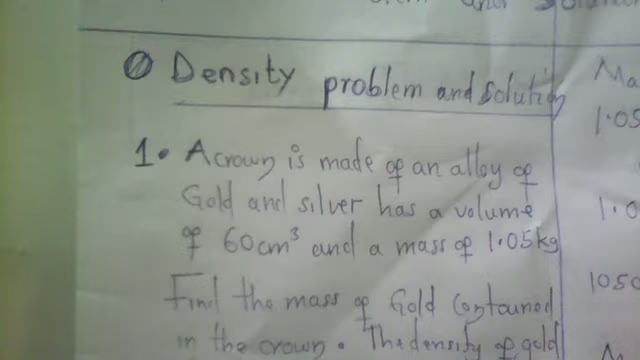 Density problem and solution
1. A crown is made of an alloy of
Gold and silver has a volume
of 60cm³ and a mass of 1.05kg
Find the mass of Gold contained
in the crown. The density of gold
Ma
1.05
1.0
1050